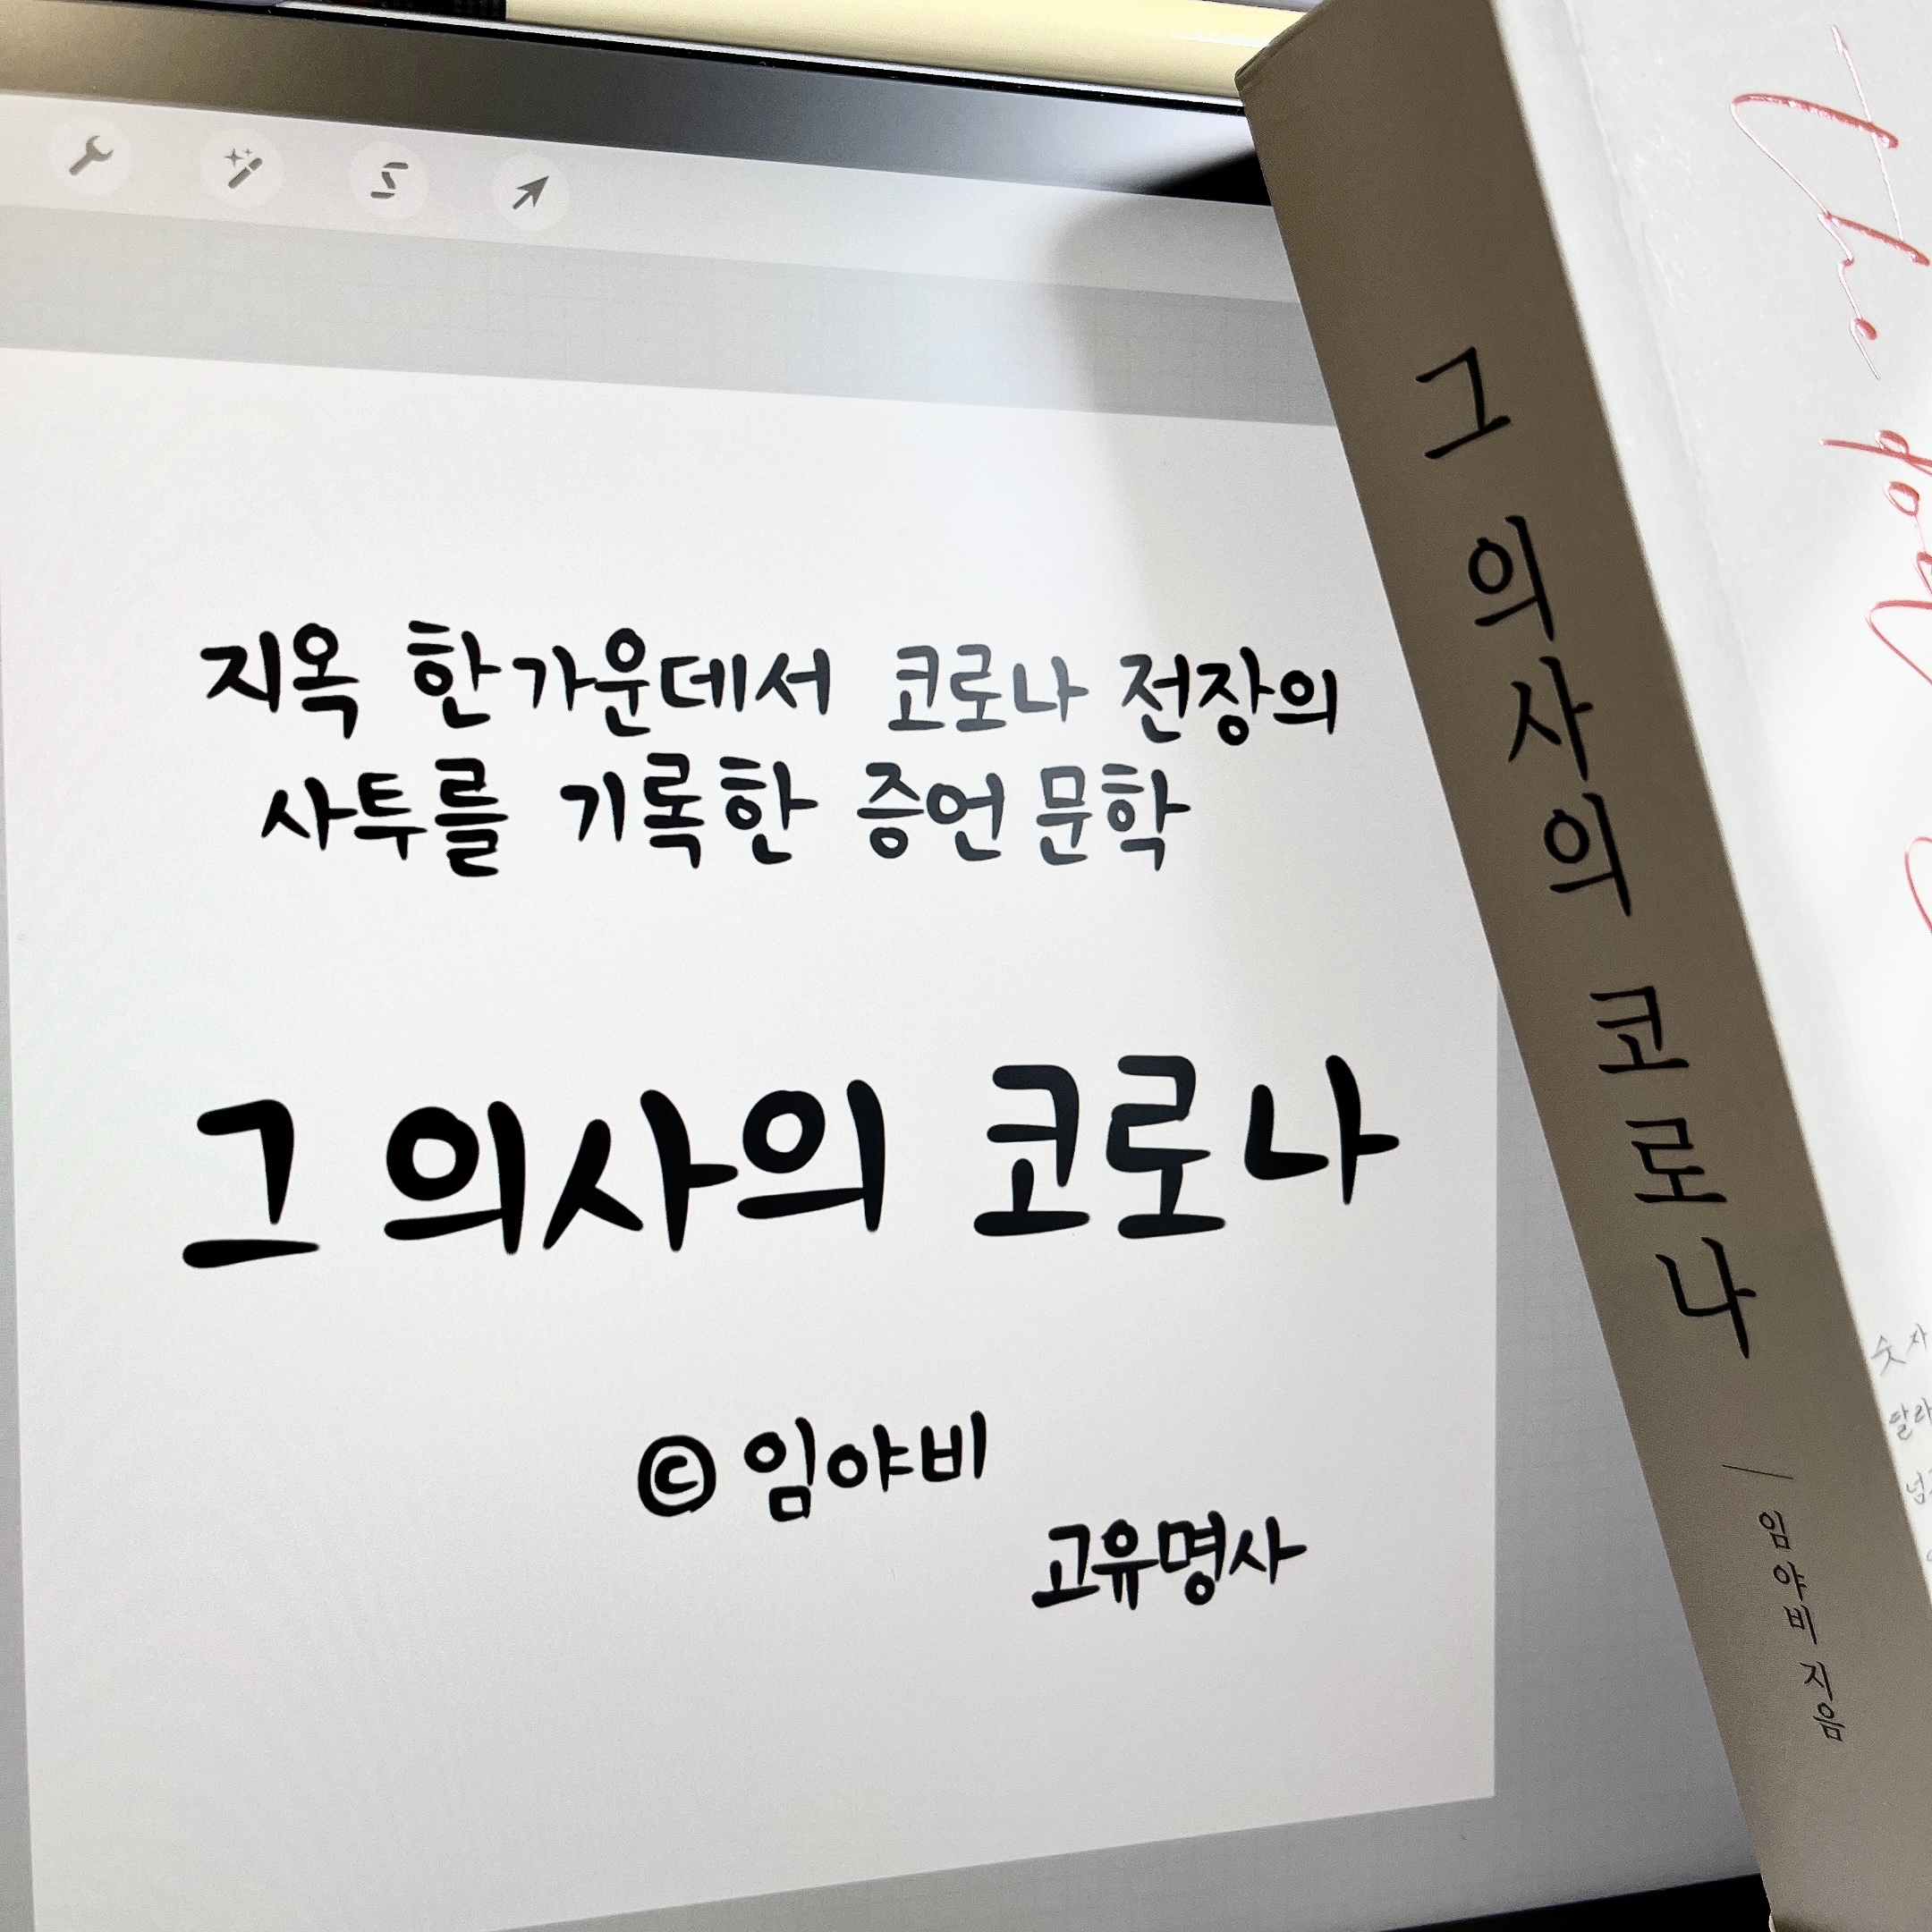 지옥 한가운데서 코로나 전장의
사투를 기록한 증언 문학
그 의사의 코로나
© 임야비
고유명사
그 의사의 코로나
임야비 지음
The